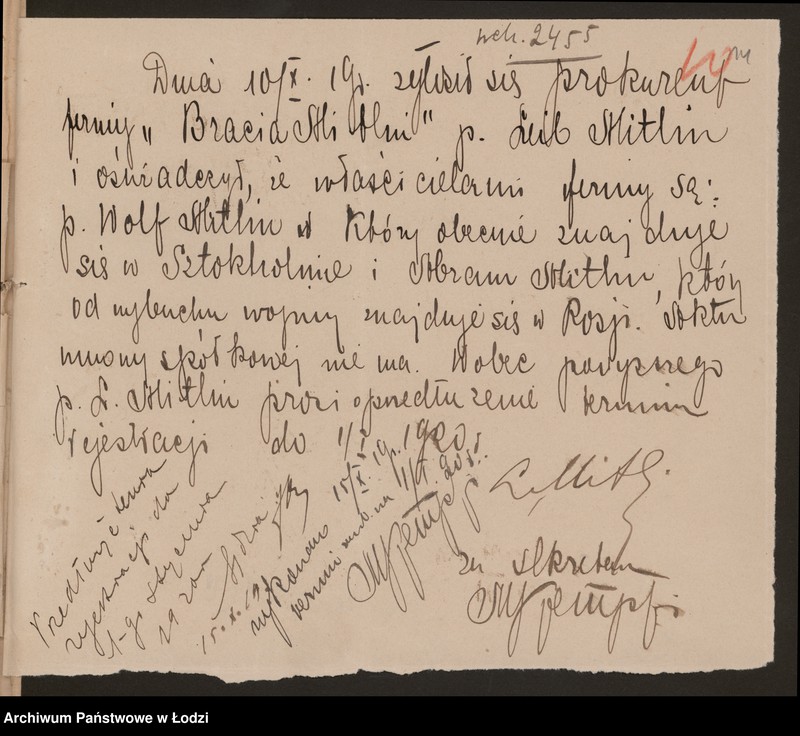 wch. 2455
Dnia 10/X. 19 r. zgłosił się prokurent
firmy „Bracia Mitlin" p. Leib Mitlin
i oświadczył, że właścicielami firmy są:
p. Wolf Mitlin który obecnie znajduje
się w Sztokholmie i Abram Mitlin, który
od wybuchu wojny znajduje się w Rosji. Aktu
umowy spółkowej nie ma. Wobec powyższego
p. L. Mitlin prosi o przedłużenie terminu
rejestracji do 1/I 1920 r.
L. Mitl.
za sekretarza
Przedłużyć termin
rejestracji do
1-go stycznia
1920 roku
Sędzia
15.X.19 r.
wykonano 15/X. 19 r.
termin na 1/I 20 r.
Archiwum Państwowe w Łodzi